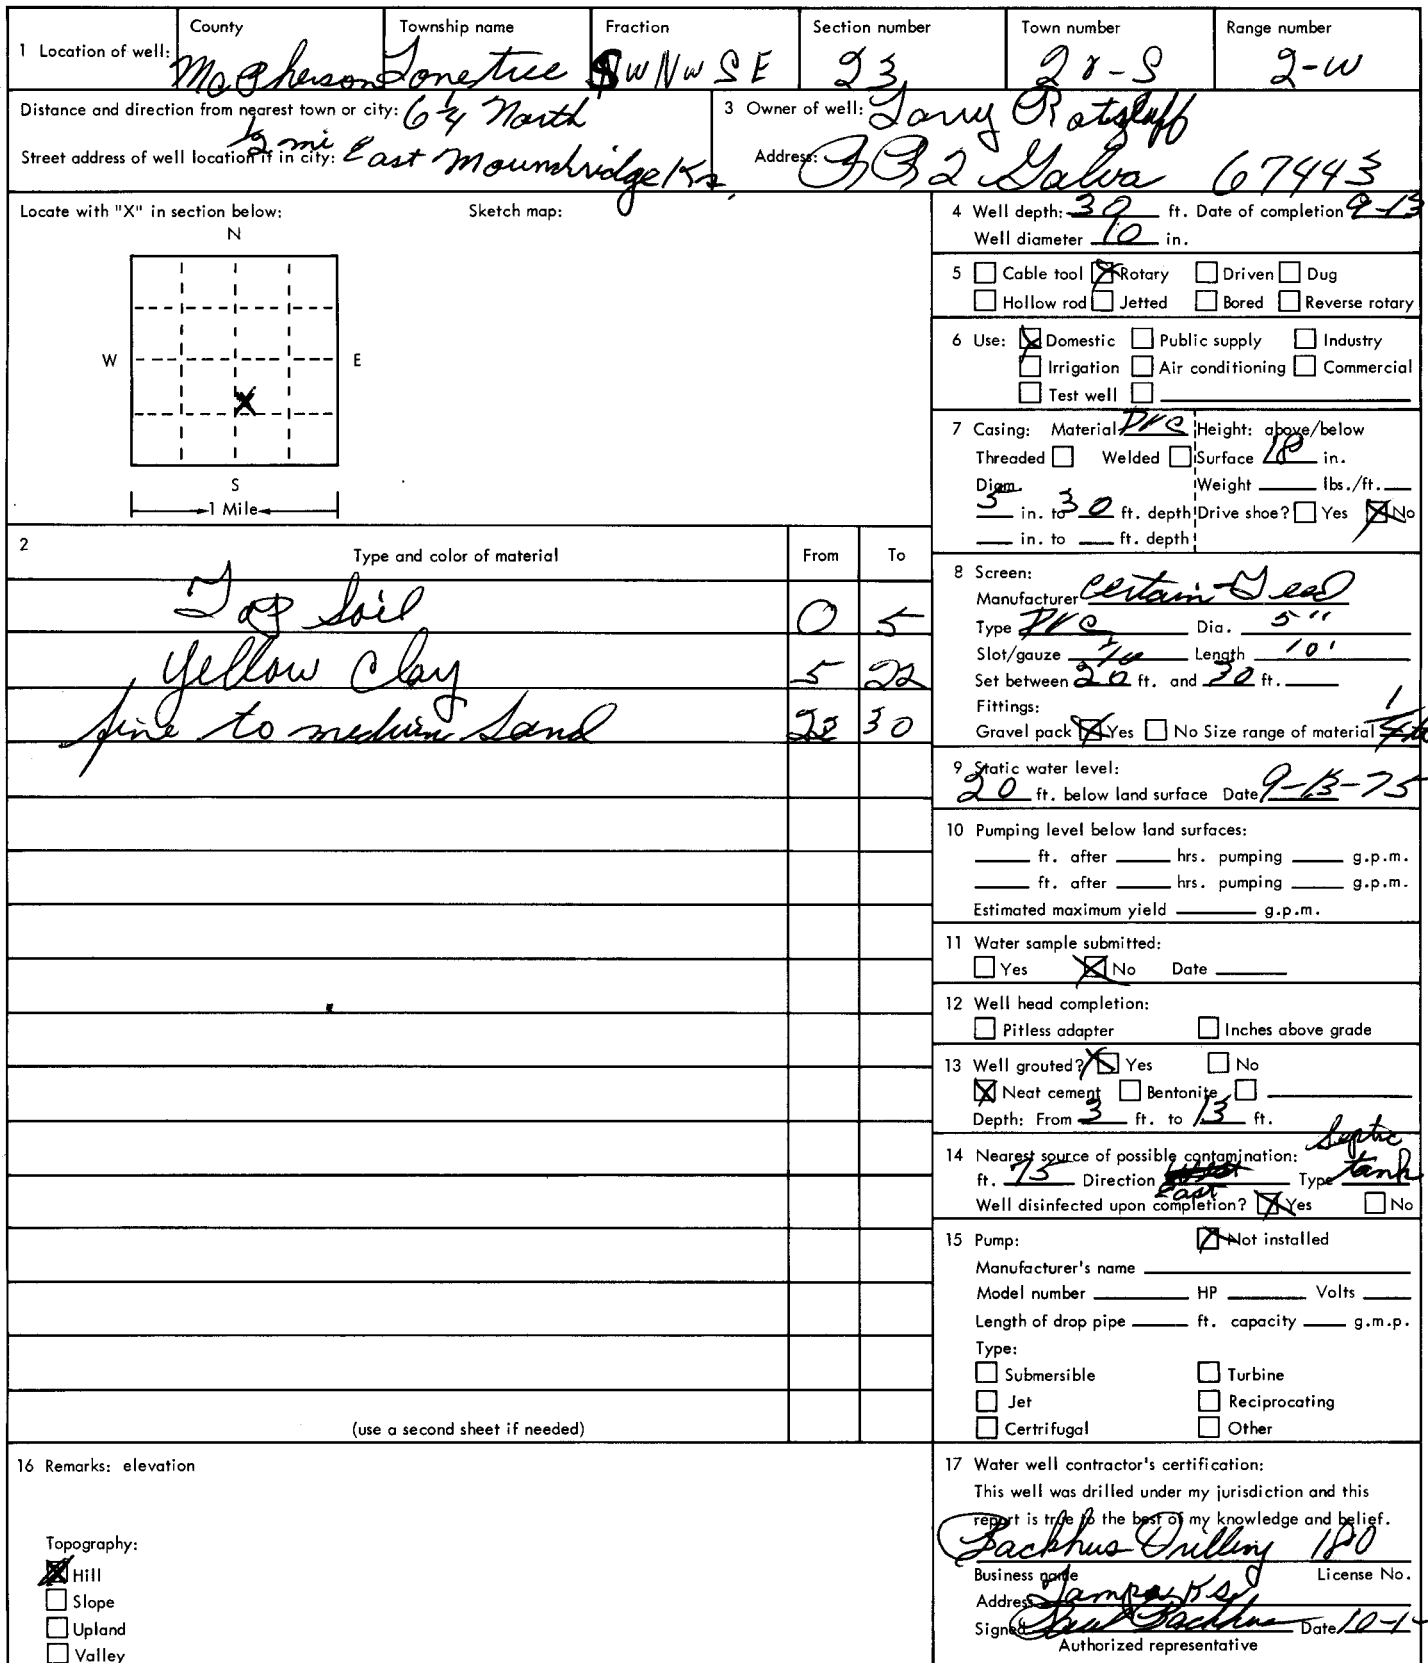 1 Location of well: County McPherson Township name Lonetree Fraction SW NW SE Section number 23 Town number Range number 2-W
Distance and direction from nearest town or city: 6 1/4 North
1/2 mi
Street address of well location if in city: East Moundridge Ks.
3 Owner of well: Larry Ratzlaff
Address: RR 2 Galva 67443
Locate with "X" in section below:
Sketch map:
N
W E
X
S
1 Mile
4 Well depth: 30 ft. Date of completion 9-13
Well diameter 10 in.
5 Cable tool X Rotary Driven Dug
Hollow rod Jetted Bored Reverse rotary
6 Use: X Domestic Public supply Industry
Irrigation Air conditioning Commercial
Test well
7 Casing: Material PVC Height: above/below
Threaded Welded Surface 18 in.
Diam. Weight lbs./ft.
5 in. to 30 ft. depth Drive shoe? Yes X No
in. to ft. depth
8 Screen:
Manufacturer Certain-Teed
Type PVC Dia. 5"
Slot/gauze Length 10'
Set between 20 ft. and 30 ft.
Fittings:
Gravel pack X Yes No Size range of material
9 Static water level:
20 ft. below land surface Date 9-13-75
10 Pumping level below land surfaces:
ft. after hrs. pumping g.p.m.
ft. after hrs. pumping g.p.m.
Estimated maximum yield g.p.m.
11 Water sample submitted:
Yes X No Date
12 Well head completion:
Pitless adapter Inches above grade
13 Well grouted? X Yes No
X Neat cement Bentonite
Depth: From 3 ft. to 13 ft.
14 Nearest source of possible contamination: Septic
ft. 75 Direction East Type tank
Well disinfected upon completion? X Yes No
15 Pump: X Not installed
Manufacturer's name
Model number HP Volts
Length of drop pipe ft. capacity g.m.p.
Type:
Submersible Turbine
Jet Reciprocating
Certrifugal Other
2 Type and color of material From To
Top Soil 0 5
Yellow Clay 5 22
fine to medium Sand 22 30
(use a second sheet if needed)
16 Remarks: elevation
Topography:
X Hill
Slope
Upland
Valley
17 Water well contractor's certification:
This well was drilled under my jurisdiction and this
report is true to the best of my knowledge and belief.
Backhus Drilling 180
Business name License No.
Address Tampa, Ks.
Signed Backhus Date 10-1-
Authorized representative